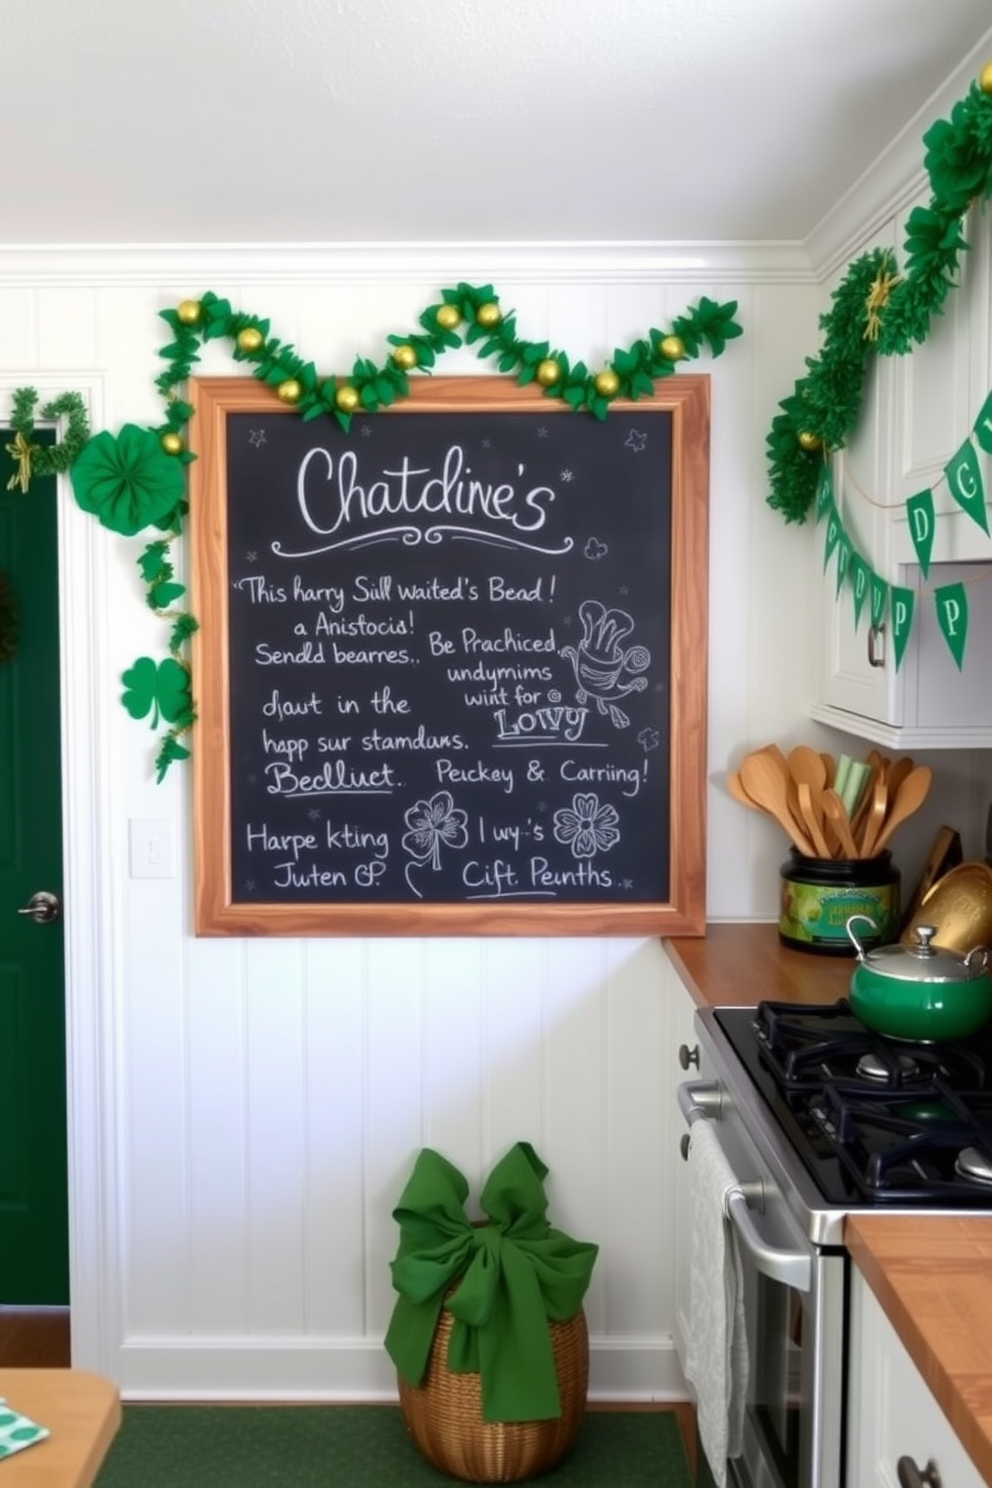 Chatdine's
"This harry Sill waited's Bead!
a Anistocis!
Sendld bearres..
Be Prachiced,
undymims
wint for
Lowy
djaut in the
happ sur stamdams.
Bedlluet.
Peuckey & Carriing!
Harpe kting
Juten GP.
I wy-'s
Cift. Peunths.
D G
P P